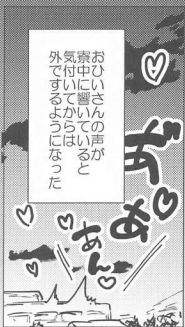 おひいさんの声が
寮中に響いていると
気付いてからは
外でするようになった
あ゛
あぁ
あん